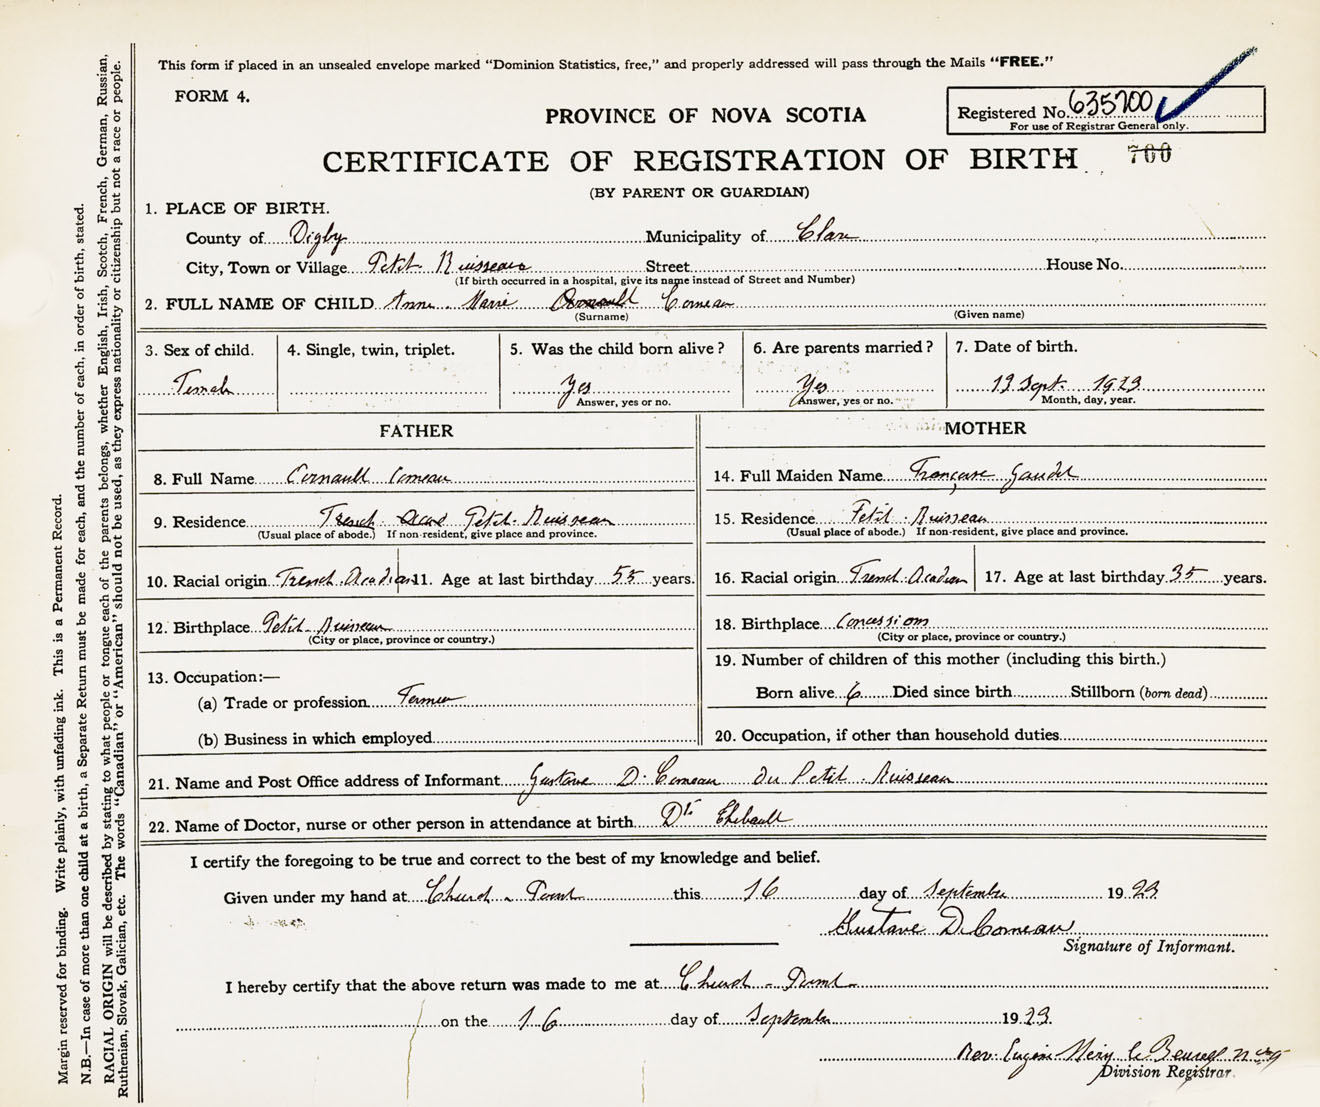 This form if placed in an unsealed envelope marked "Dominion Statistics, free," and properly addressed will pass through the Mails "FREE."
FORM 4.
PROVINCE OF NOVA SCOTIA
Registered No. 635700
For use of Registrar General only.
CERTIFICATE OF REGISTRATION OF BIRTH 700
(BY PARENT OR GUARDIAN)
1. PLACE OF BIRTH.
County of Digby Municipality of Clare
City, Town or Village Petit Ruisseau Street House No.
(If birth occurred in a hospital, give its name instead of Street and Number)
2. FULL NAME OF CHILD Anne Marie Comeau
(Surname) (Given name)
3. Sex of child. 4. Single, twin, triplet. 5. Was the child born alive? 6. Are parents married? 7. Date of birth.
Female Yes Yes 13 Sept. 1923
Answer, yes or no. Answer, yes or no. Month, day, year.
FATHER MOTHER
8. Full Name Comeau 14. Full Maiden Name Gaudet
9. Residence French Petit Ruisseau 15. Residence Petit Ruisseau
(Usual place of abode.) If non-resident, give place and province. (Usual place of abode.) If non-resident, give place and province.
10. Racial origin French Acadian 11. Age at last birthday 55 years. 16. Racial origin French Acadian 17. Age at last birthday 35 years.
12. Birthplace Petit Ruisseau 18. Birthplace Concessions
(City or place, province or country.) (City or place, province or country.)
13. Occupation:— 19. Number of children of this mother (including this birth.)
(a) Trade or profession Farmer Born alive 6 Died since birth Stillborn (born dead)
(b) Business in which employed 20. Occupation, if other than household duties
21. Name and Post Office address of Informant Gustave D. Comeau du Petit Ruisseau
22. Name of Doctor, nurse or other person in attendance at birth Dr Thibault
I certify the foregoing to be true and correct to the best of my knowledge and belief.
Given under my hand at Church - Point this 16 day of September 1923
Gustave D. Comeau
Signature of Informant.
I hereby certify that the above return was made to me at Church - Point
on the 16 day of September 1923.
Rev. Eugène
Division Registrar.
Margin reserved for binding. Write plainly, with unfading ink. This is a Permanent Record.
N.B.—In case of more than one child at a birth, a Separate Return must be made for each, and the number of each, in order of birth, stated.
RACIAL ORIGIN will be described by stating to what people or tongue each of the parents belongs, whether English, Irish, Scotch, French, German, Russian,
Ruthenian, Slovak, Galician, etc. The words "Canadian" or "American" should not be used, as they express nationality or citizenship but not a race or people.